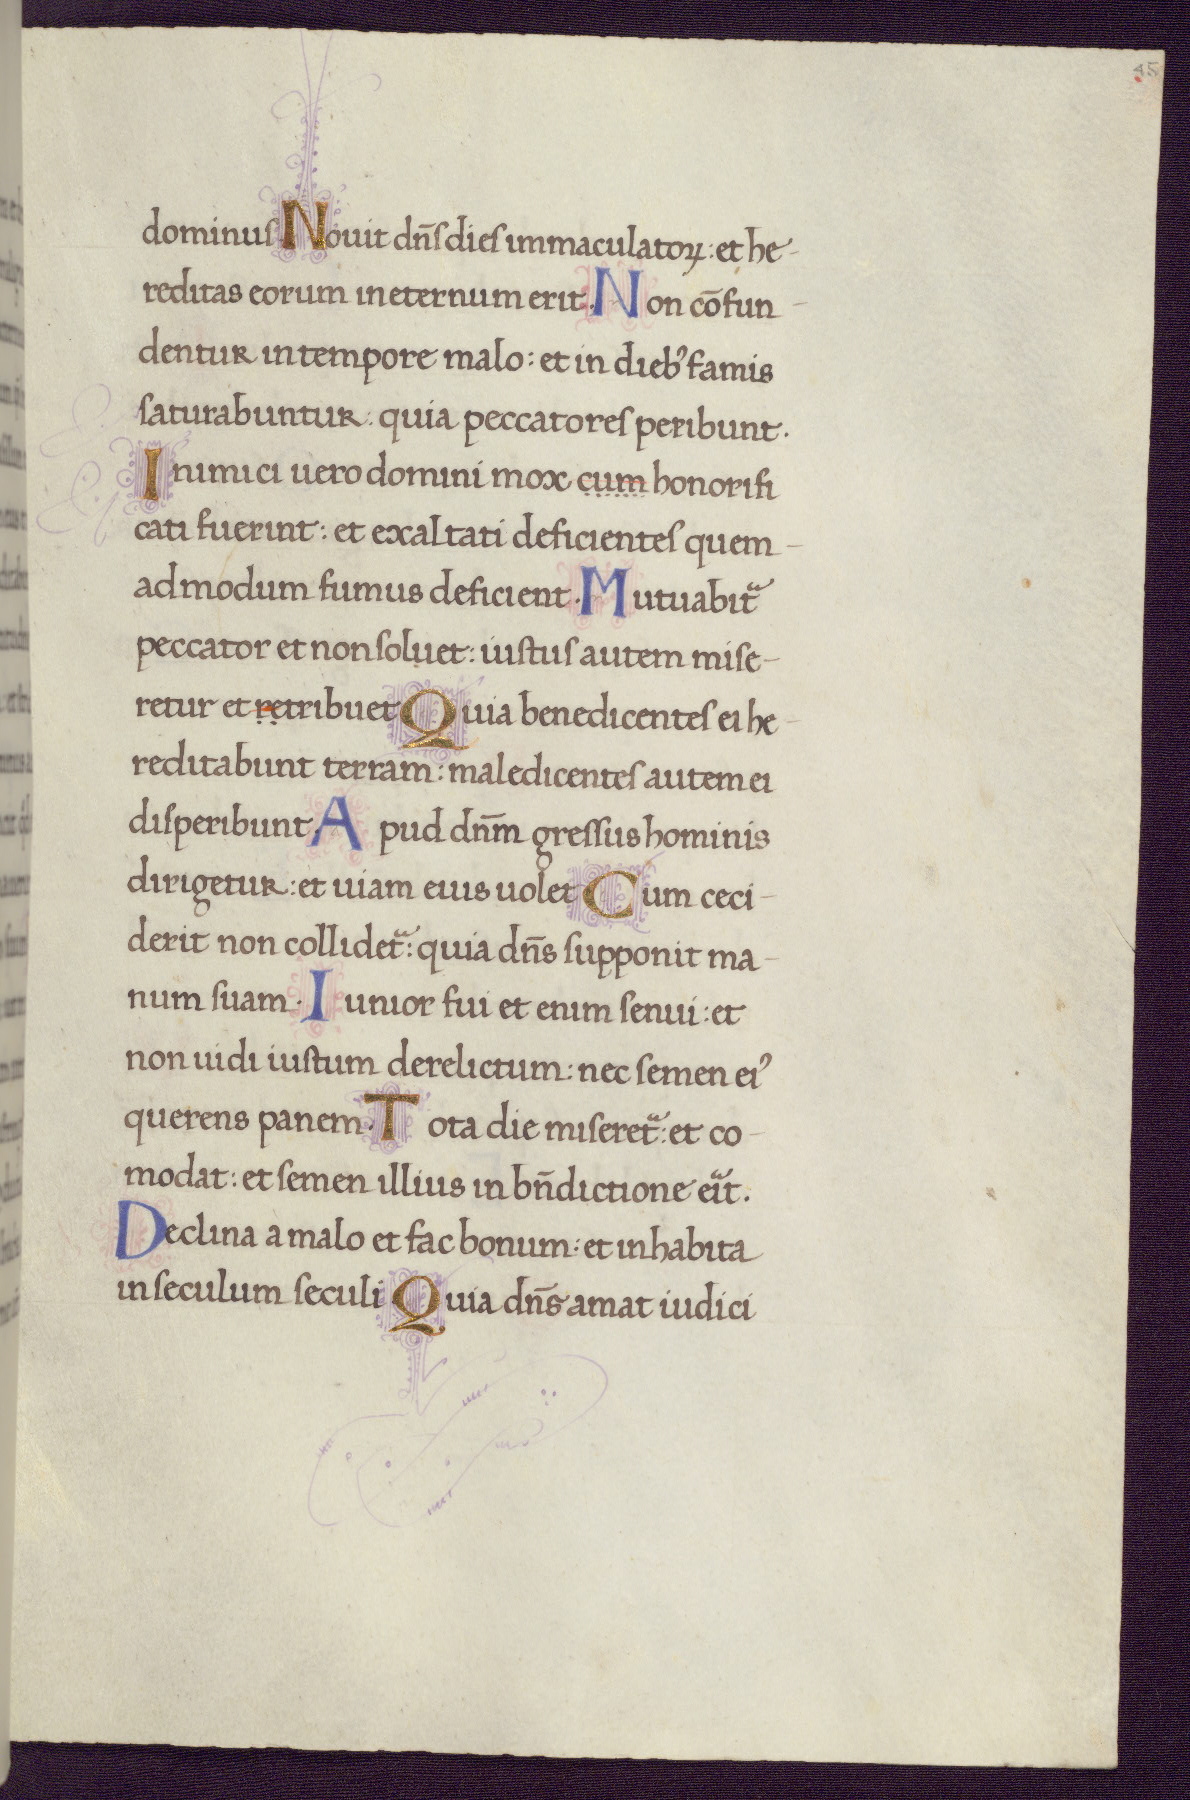 45
dominus Nouit dn̄s dies immaculatoꝝ: et he-
reditas eorum in eternum erit. Non cōfun-
dentur in tempore malo: et in dieb᾿ famis
saturabuntur: quia peccatores peribunt.
Inimici uero domini mox cum honorifi
cati fuerint: et exaltati deficientes quem-
admodum fumus deficient. Mutuabitᷓ
peccator et non soluet: iustus autem mise-
retur et retribuet Quia benedicentes ei he-
reditabunt terram: maledicentes autem ei
disperibunt. Apud dn̄m gressus hominis
dirigetur: et uiam eius uolet Cum ceci-
derit non collidetᷓ: quia dn̄s supponit ma-
num suam. Iunior fui et enim senui: et
non uidi iustum derelictum: nec semen ei᾿
querens panem. Tota die miseretᷓ: et co-
modat: et semen illius in bn̄dictione eitᷓ.
Declina a malo et fac bonum: et inhabita
in seculum seculi Quia dn̄s amat iudici